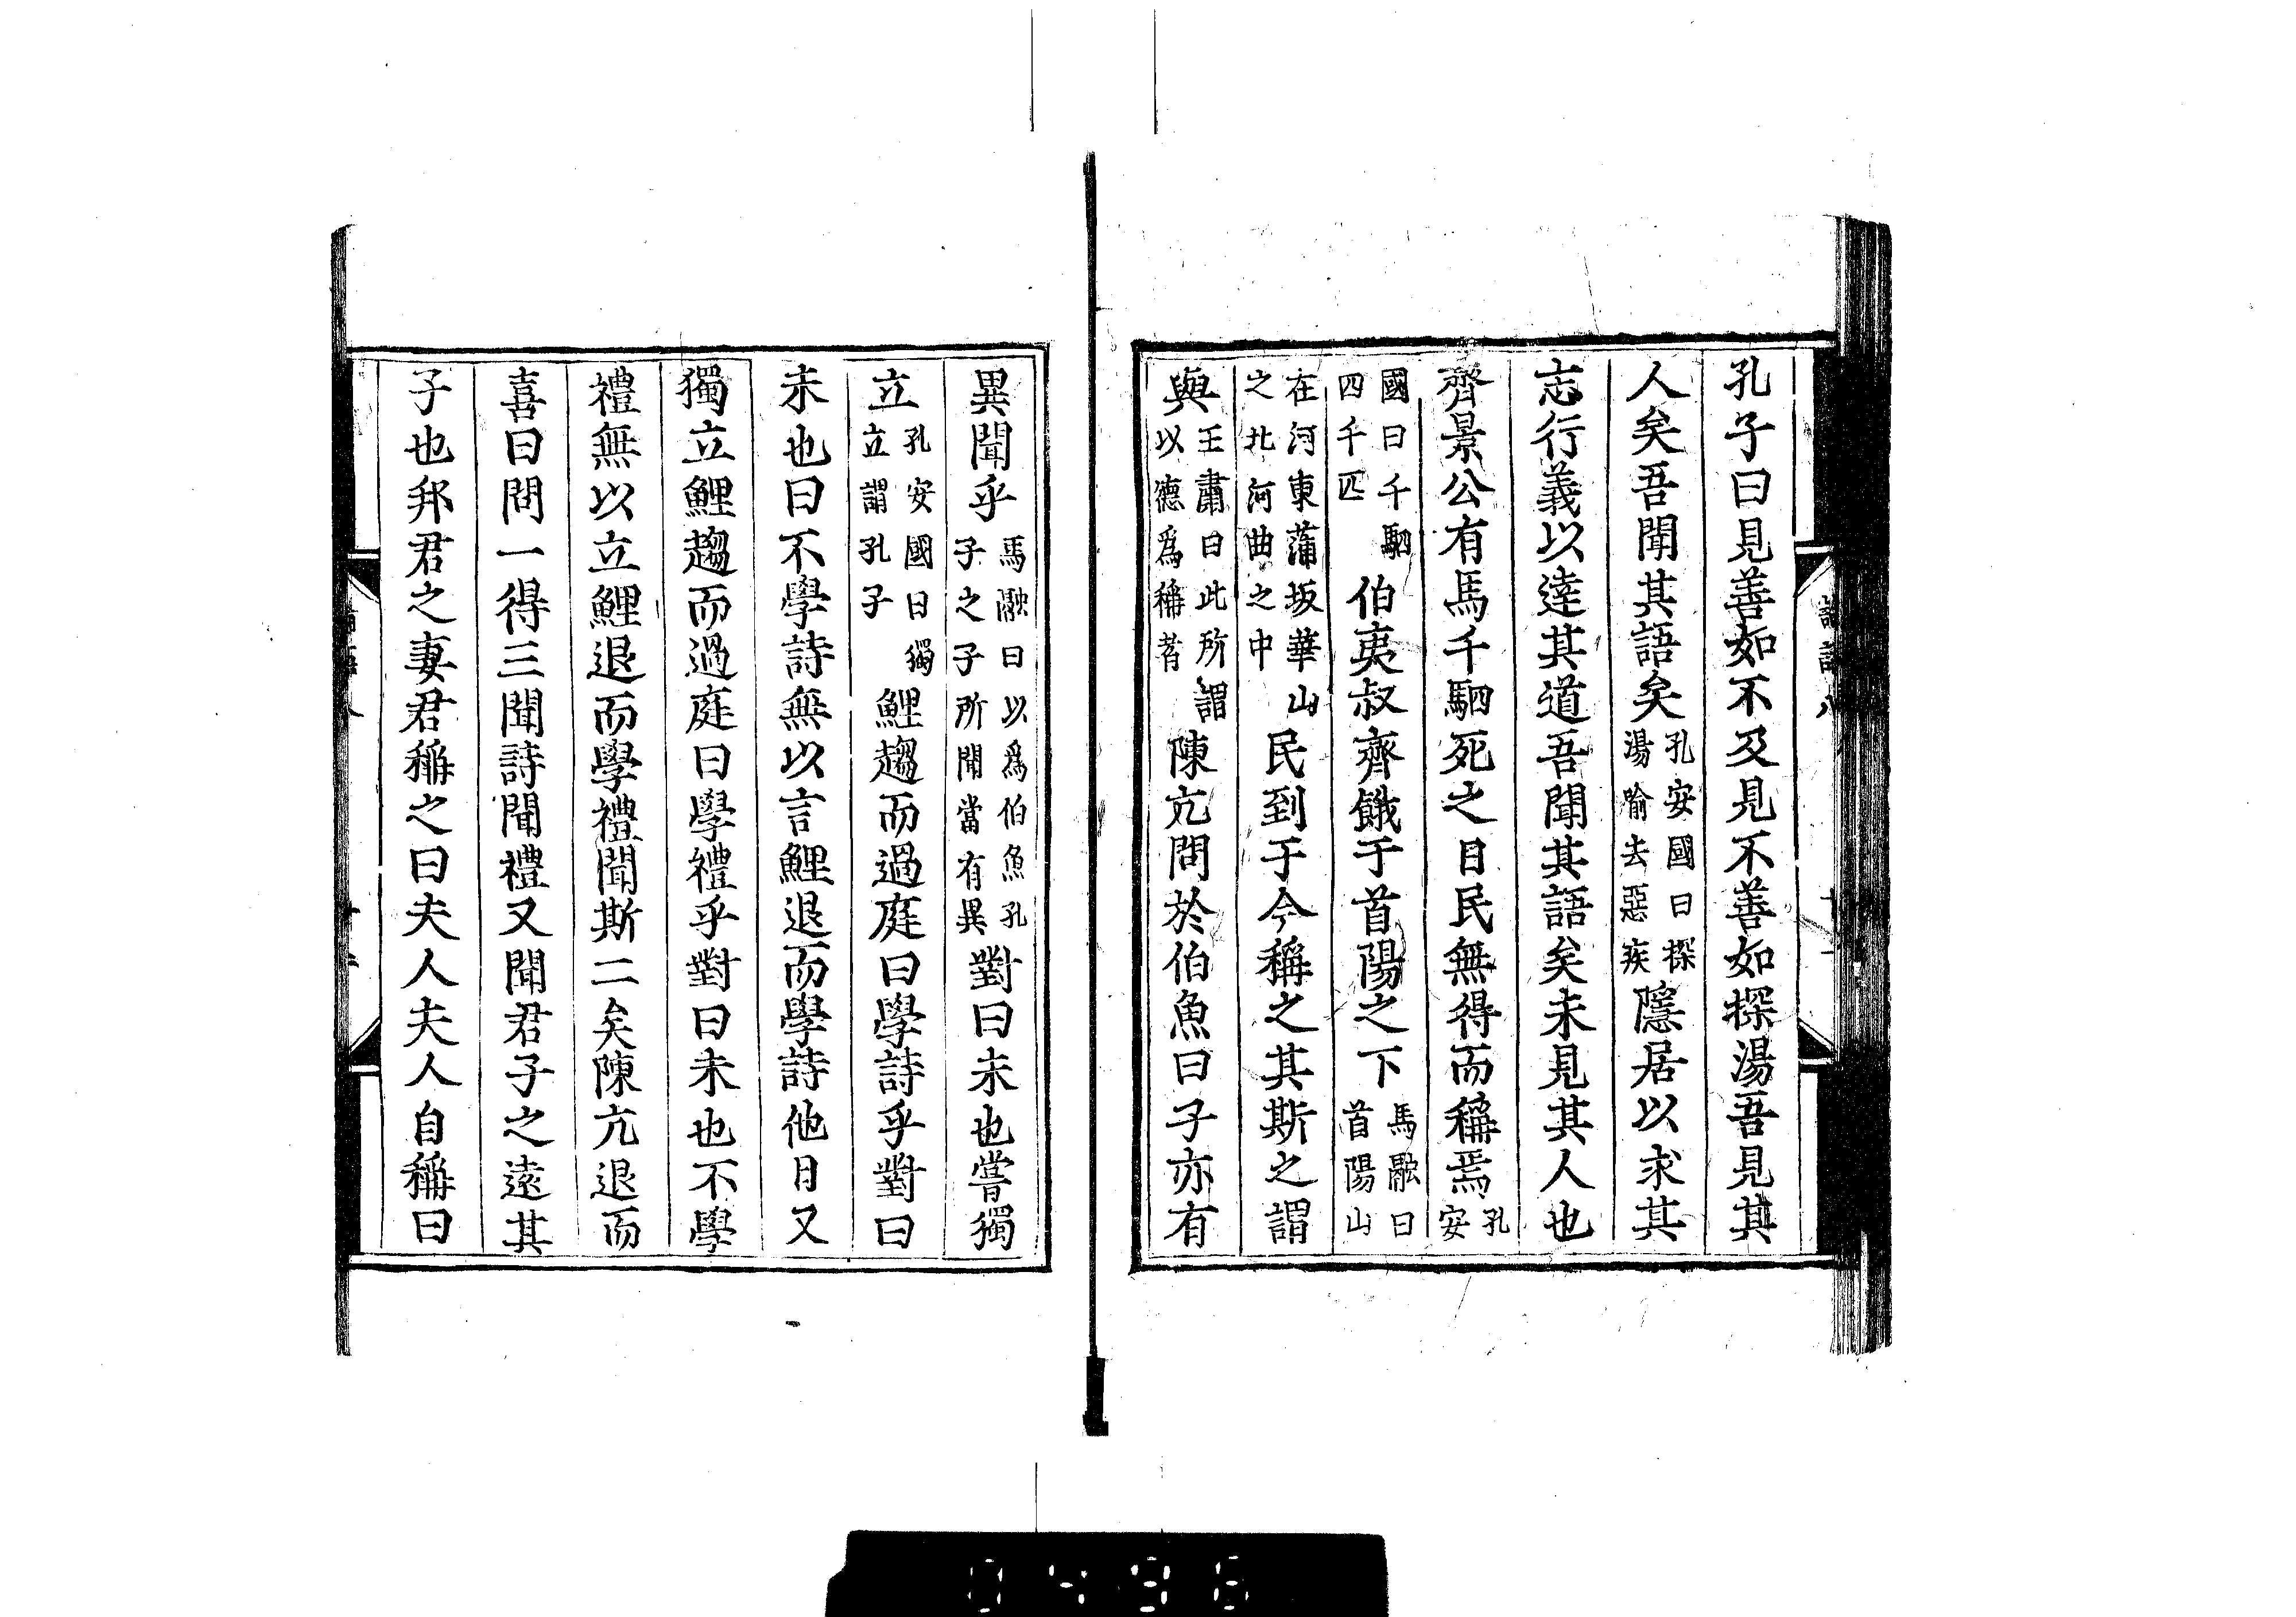 孔子曰見善如不及見不善如探湯吾見其
人矣吾聞其語矣孔安國曰探湯喻去惡疾隱居以求其
志行義以達其道吾聞其語矣未見其人也
齊景公有馬千駟死之日民無得而稱焉孔安
國曰千駟四千匹伯夷叔齊餓于首陽之下馬融曰首陽山
在河東蒲坂華山之北河曲之中民到于今稱之其斯之謂
與王肅曰此所謂以德為稱者陳亢問於伯魚曰子亦有
異聞乎馬融曰以為伯魚孔子之子所聞當有異對曰未也嘗獨
立孔安國曰獨立謂孔子鯉趨而過庭曰學詩乎對曰
未也曰不學詩無以言鯉退而學詩他日又
獨立鯉趨而過庭曰學禮乎對曰未也不學
禮無以立鯉退而學禮聞斯二矣陳亢退而
喜曰問一得三聞詩聞禮又聞君子之遠其
子也邦君之妻君稱之曰夫人夫人自稱曰
0496